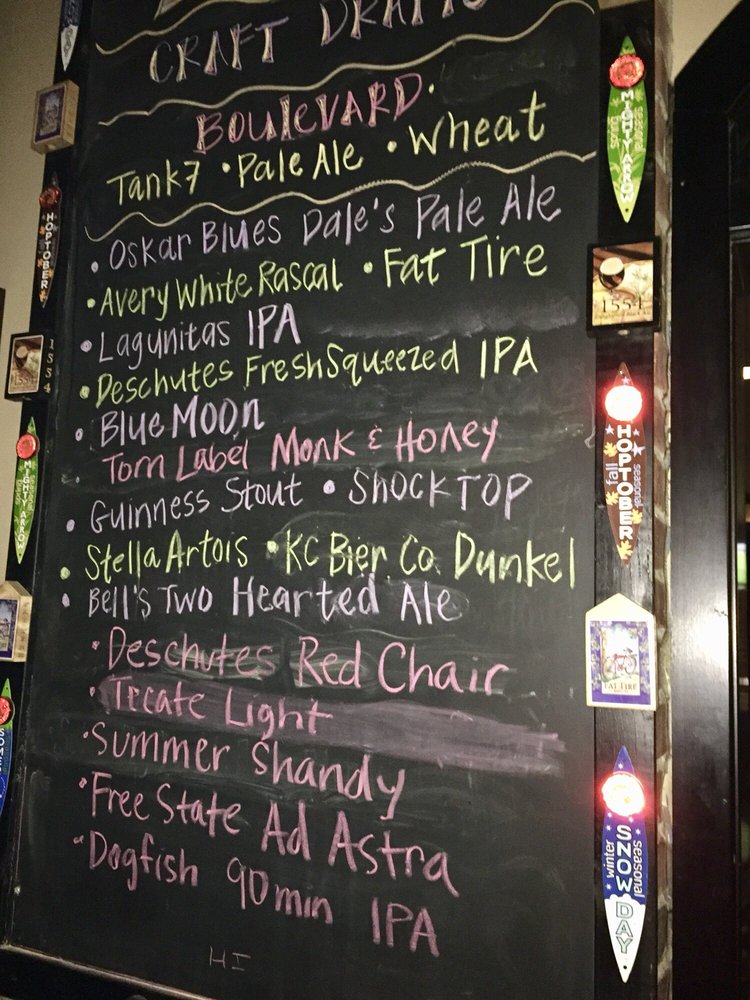 CRAFT DRAFTS
BOULEVARD
Tank7 • Pale Ale • Wheat
• Oskar Blues Dale's Pale Ale
• Avery White Rascal • Fat Tire
• Lagunitas IPA
• Deschutes Fresh Squeezed IPA
• Blue Moon
Torn Label Monk & Honey
• Guinness Stout • SHOCK TOP
• Stella Artois • KC Bier Co. Dunkel
• Bell's Two Hearted Ale
• Deschutes Red Chair
• Tecate Light
• Summer Shandy
• Free State Ad Astra
• Dogfish 90 min IPA
HI
HOPTOBER
1554
MIGHTY ARROW
MIGHTY ARROW
seasonal
1554
fall
seasonal
HOPTOBER
FAT TIRE
winter
seasonal
SNOW DAY